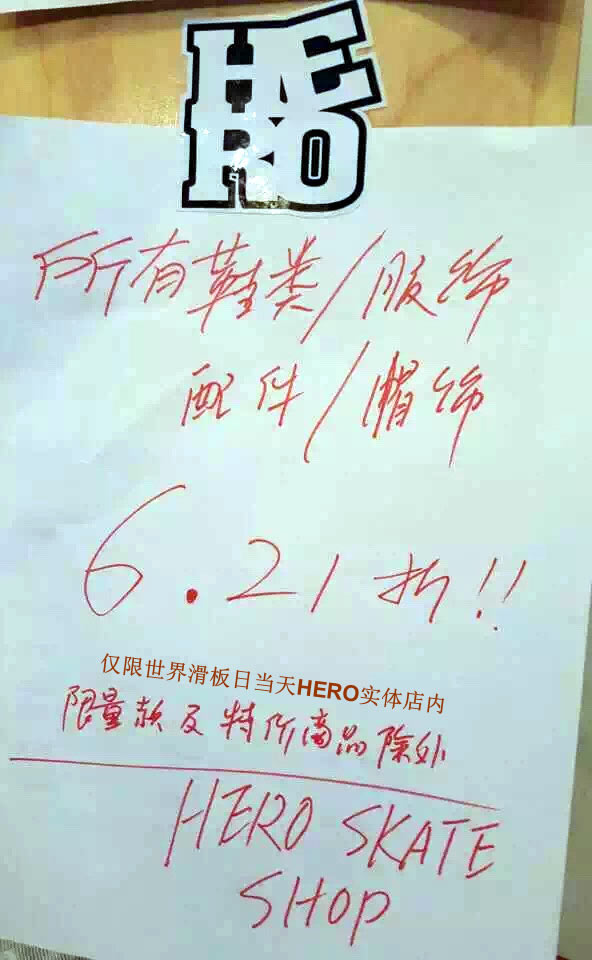 HE
RO
所有鞋类/服饰
配件/帽饰
6.21折!!
仅限世界滑板日当天HERO实体店内
限量款及特价商品除外
HERO SKATE
SHOP